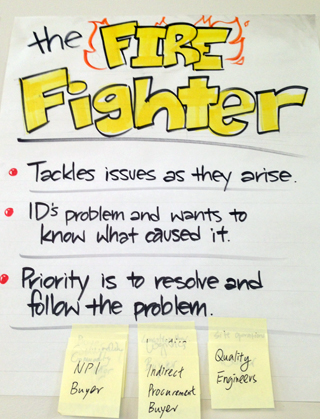 the FIRE
Fighter
Tackles issues as they arise.
ID's problem and wants to
know what caused it.
Priority is to resolve and
follow the problem.
NPI
Buyer
Indirect
Procurement
Buyer
Quality
Engineers